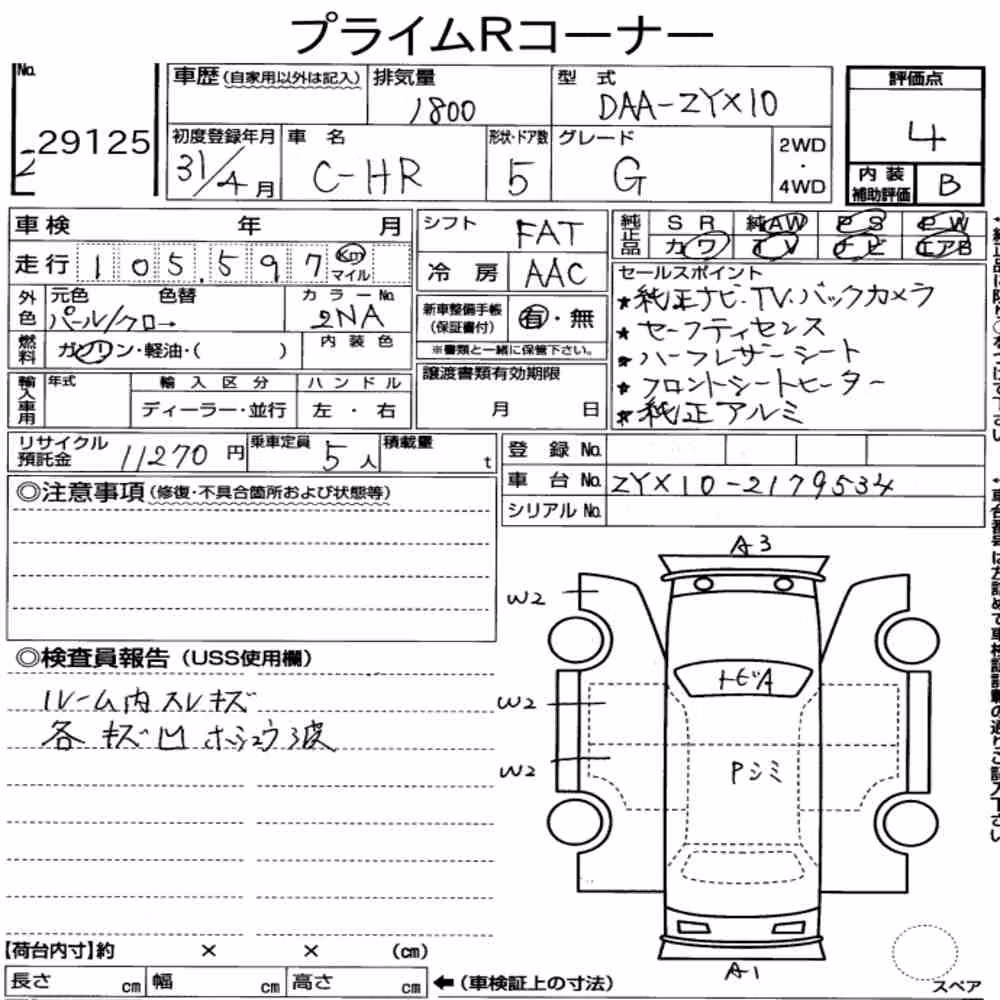 プライムRコーナー
No.
29125
車歴(自家用以外は記入)
排気量
1800
型 式
DAA-ZYX10
評価点
4
初度登録年月
31/4月
車 名
C-HR
形状・ドア数
5
グレード
G
2WD
・
4WD
内装補助評価
B
車検 年 月
走行 105,597 Km マイル
外色
元色 色替
パール/クロ→
カラーNo.
2NA
燃料
ガソリン・軽油・( )
内装色
輸入車用
年式
輸入区分
ディーラー・並行
ハンドル
左・右
シフト
FAT
冷房
AAC
新車整備手帳(保証書付)
有・無
※書類と一緒に保管下さい。
譲渡書類有効期限
月 日
純正品
SR 純AW PS PW
カワ TV ナビ エアB
セールスポイント
★純正ナビ・TV・バックカメラ
★セーフティセンス
★ハーフレザーシート
★フロントシートヒーター
★純正アルミ
リサイクル預託金
11270円
乗車定員
5人
積載量
t
登録No.
車台No.
ZYX10-2179534
シリアルNo.
◎注意事項(修復・不具合箇所および状態等)
◎検査員報告(USS使用欄)
ルーム内スレキズ
各キズ凹ホシュウ波
A3
W2
トビA
W2
W2
Pシミ
A1
スペア
【荷台内寸】約 × × (cm)
長さ cm 幅 cm 高さ cm
←(車検証上の寸法)